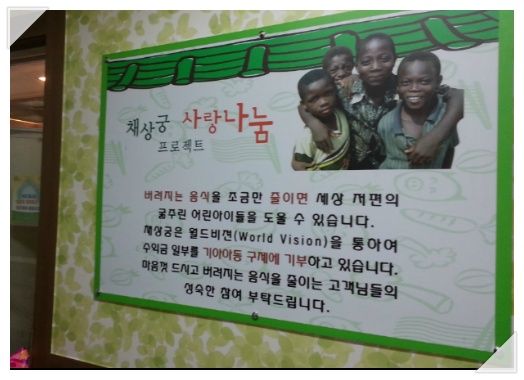 채상궁 사랑나눔
프로젝트
버려지는 음식을 조금만 줄이면 세상 저편의
굶주린 어린아이들을 도울 수 있습니다.
채상궁은 월드비전(World Vision)을 통하여
수익금 일부를 기아아동 구제에 기부하고 있습니다.
마음껏 드시고 버려지는 음식을 줄이는 고객님들의
성숙한 참여 부탁드립니다.